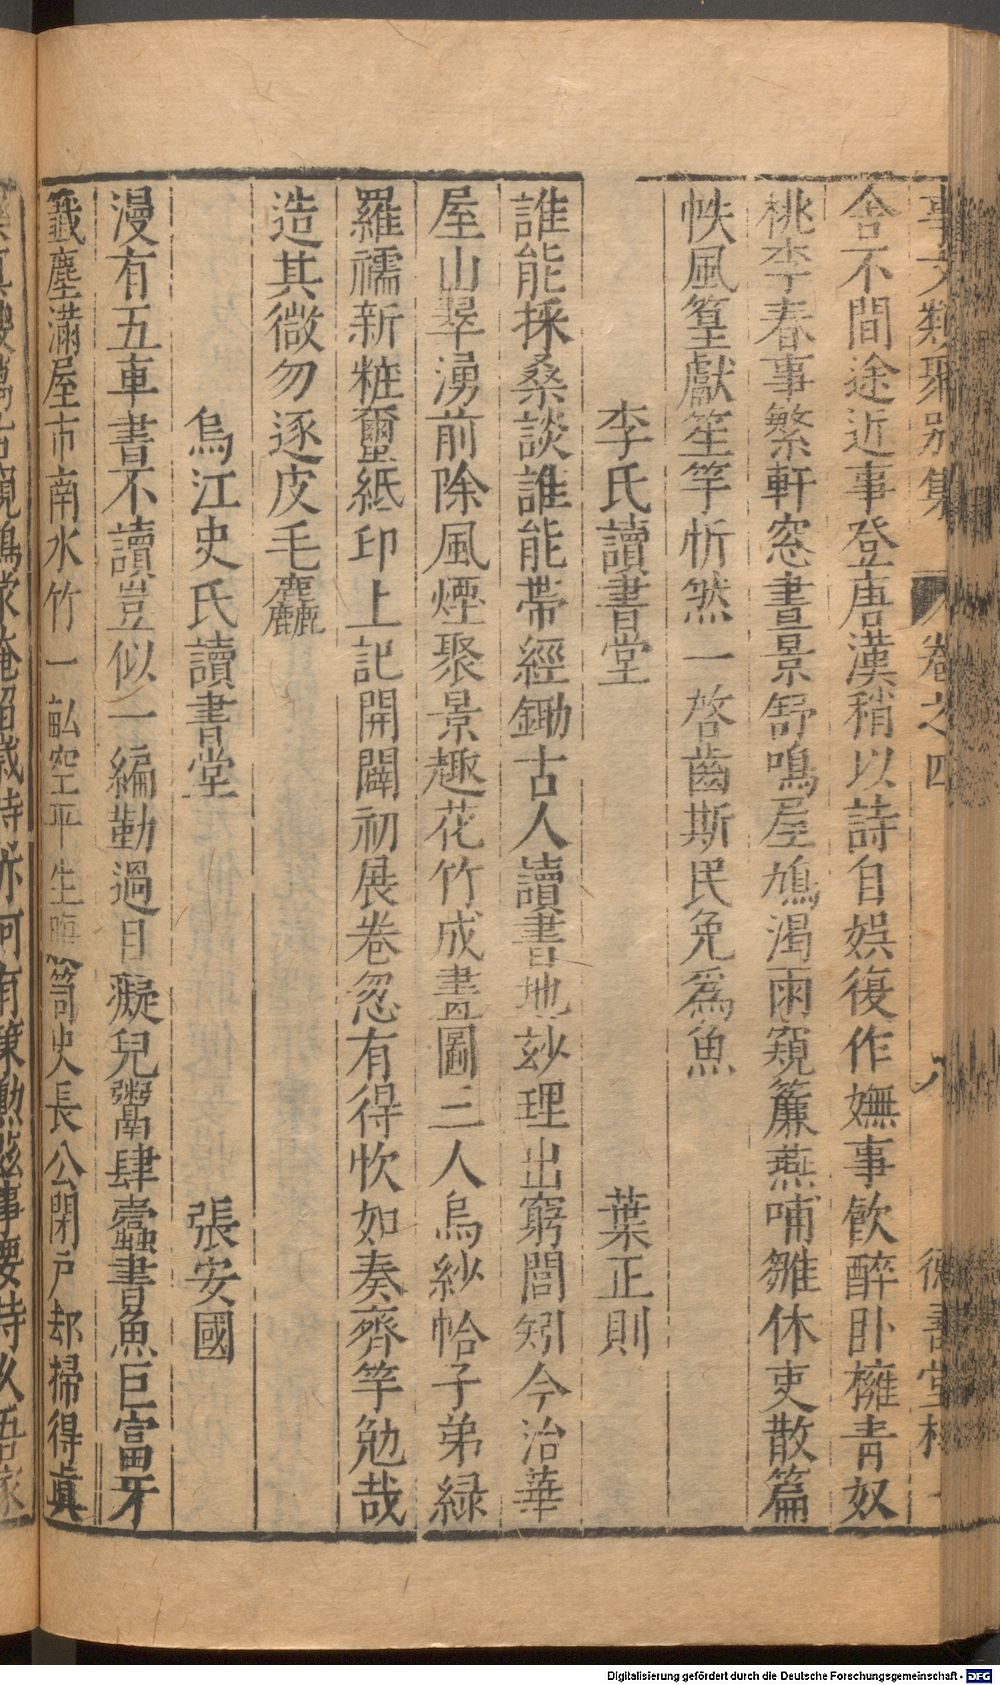 事文類聚別集　卷之四　八
舍不間途近事登唐漢稍以詩自娛復作嫵事飲醉臥擁青奴
桃李春事繁軒窓晝景舒鳴屋鳩渴雨窺簾燕哺雛休吏散篇
帙風篁獻笙竽忻然一啓齒斯民免爲魚
李氏讀書堂　葉正則
誰能採桑談誰能帶經鋤古人讀書地玅理出窮閻矧今治華
屋山翠湧前除風煙聚景趣花竹成畫圖三人烏紗帢子弟緑
羅襦新粧璽紙印上記開闢初展卷忽有得忺如奏齊竽勉哉
造其微勿逐皮毛麤
烏江史氏讀書堂　張安國
漫有五車書不讀豈似一編勤過日癡兒鬻肆蠹書魚巨富牙
籤塵滿屋市南水竹一畝空平生史長公閉戶却掃得眞
Digitalisierung gefördert durch die Deutsche Forschungsgemeinschaft - DFG